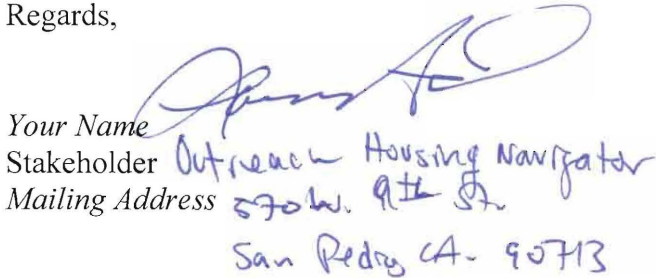 Regards,
Your Name
Stakeholder Outreach Housing Navigator
Mailing Address 570 W. 9th St.
San Pedro CA. 90713